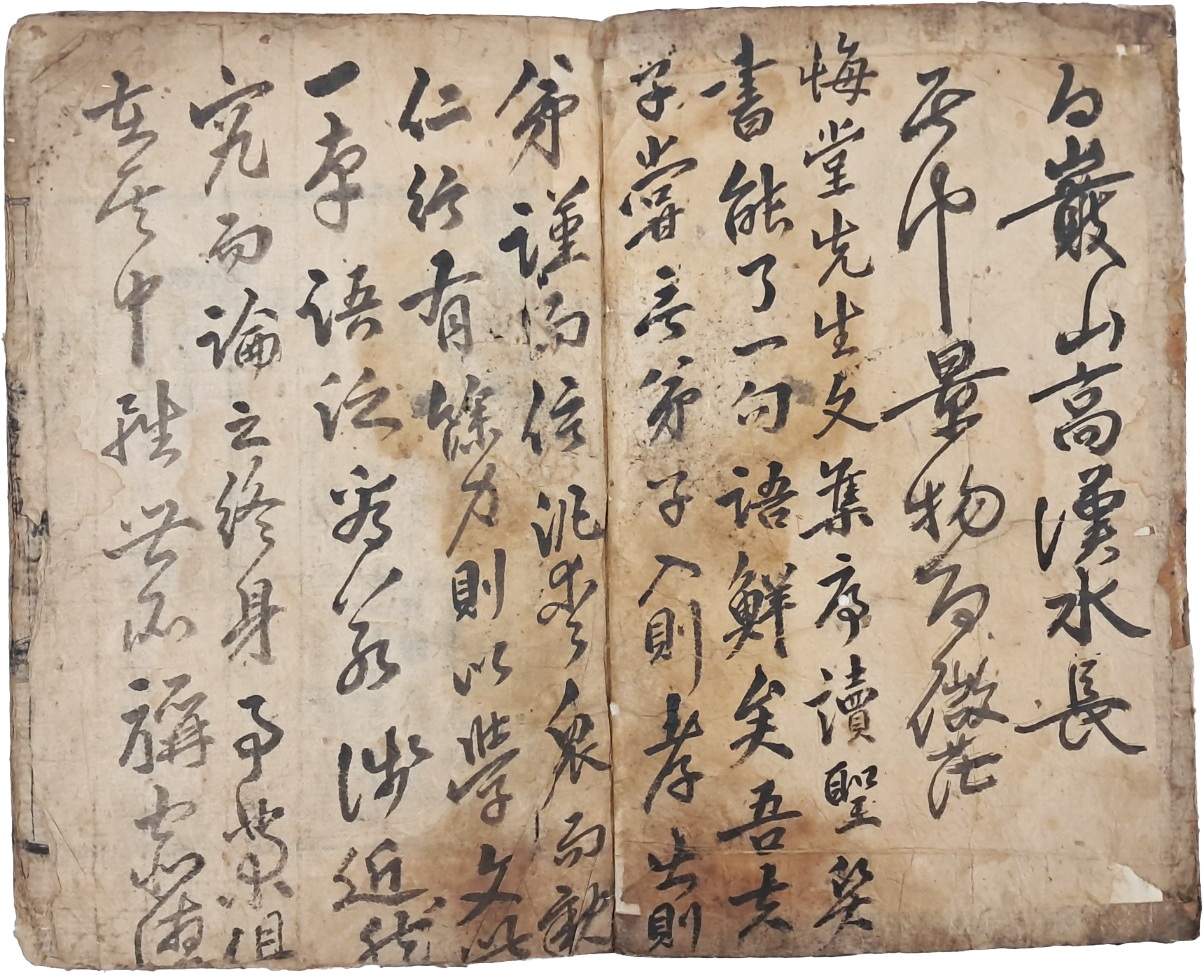 白巖山高漢水長
其中景物日微茫
悔堂先生文集序讀聖賢
書能了一句語鮮矣吾夫
子嘗言弟子入則孝出則
弟謹而信汎愛衆而親
仁行有餘力則以學文此
一章語泛看若涉近
究而論之終身事業俱
在其中